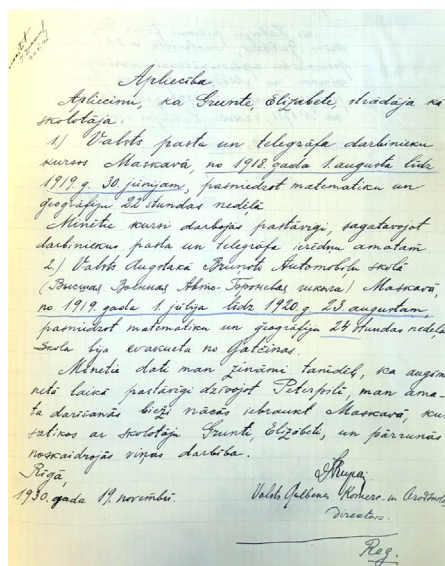 Apliecība
Apliecinu, ka Grunte, Elizabete, strādāja kā
skolotāja:
1.) Valsts pasta un telegrafa darbinieku
kursos Maskavā, no 1918. gada 1. augusta līdz
1919. g. 30. jūnijam, pasniedzot matematiku un
geografiju 22 stundas nedēļā
Minētie kursi darbojās pastāvīgi, sagatavojot
darbiniekus pasta un telegrafa ierēdņu amatam.
2.) Valsts Augstakā Bruņoto Automobiļu skolā
(Высшая Военная Авто-Броневая школа) Maskavā
no 1919. gada 1. jūlija līdz 1920. g. 23. augustam,
pasniedzot matematiku un geografiju 24 stundas nedēļā
Skola bija evakueta no Gatčinas.
Minētie dati man zināmi tanīdēļ, ka augšmi-
netā laikā pastāvīgi dzīvojot Peterpilī, man ama-
ta darīšanās bieži nācās iebraukt Maskavā, kur
satikos ar skolotāju Grunti, Elizabeti, un pārrunās
noskaidrojās viņas darbība.
Rīgā,
1930. gada 19. novembrī.
Valsts Gulbenes Komerc. un Arodskolas
Direktors.
Reg.